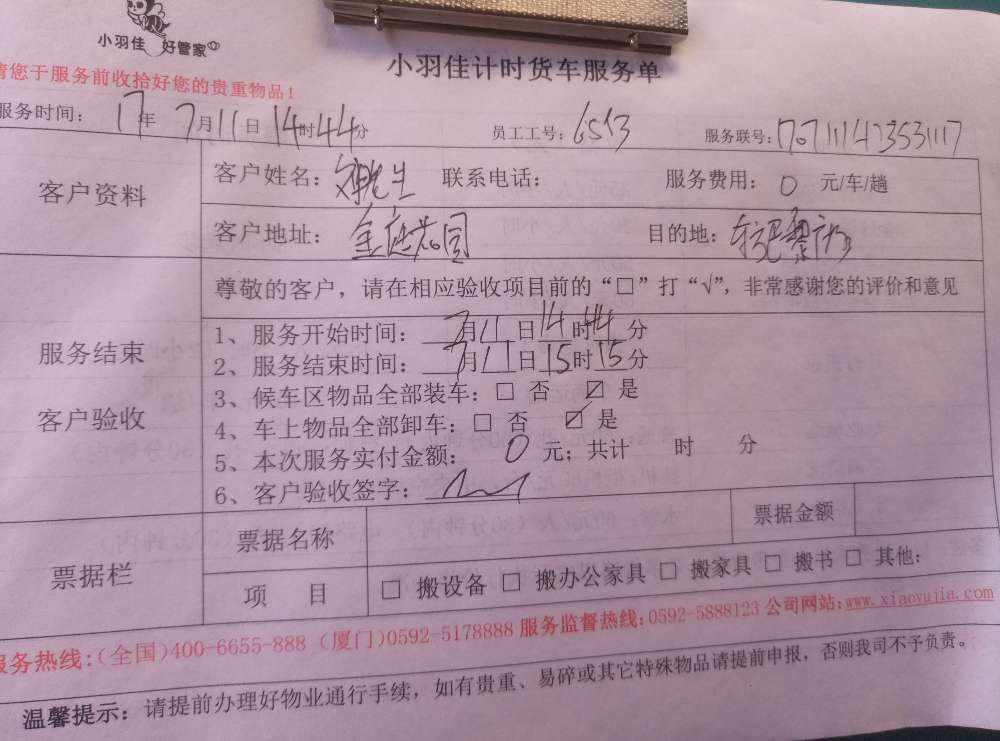 小羽佳 好管家
小羽佳计时货车服务单
请您于服务前收拾好您的贵重物品！
服务时间： 17年 7月11日 14时44分 员工工号：6513 服务联号：
客户资料
客户姓名： 先生 联系电话： 服务费用：0 元/车/趟
客户地址：金庭花园 目的地：
服务结束
客户验收
尊敬的客户，请在相应验收项目前的“□”打“√”，非常感谢您的评价和意见
1、服务开始时间： 7月11日14时44分
2、服务结束时间： 7月11日15时15分
3、候车区物品全部装车：□ 否 ☑ 是
4、车上物品全部卸车：□ 否 ☑ 是
5、本次服务实付金额： 0 元；共计 时 分
6、客户验收签字：
票据栏
票据名称 票据金额
项 目 □ 搬设备 □ 搬办公家具 □ 搬家具 □ 搬书 □ 其他：
服务热线：(全国)400-6655-888 (厦门)0592-5178888 服务监督热线：0592-5888123 公司网站：www.xiaoyujia.com
温馨提示：请提前办理好物业通行手续，如有贵重、易碎或其它特殊物品请提前申报，否则我司不予负责。